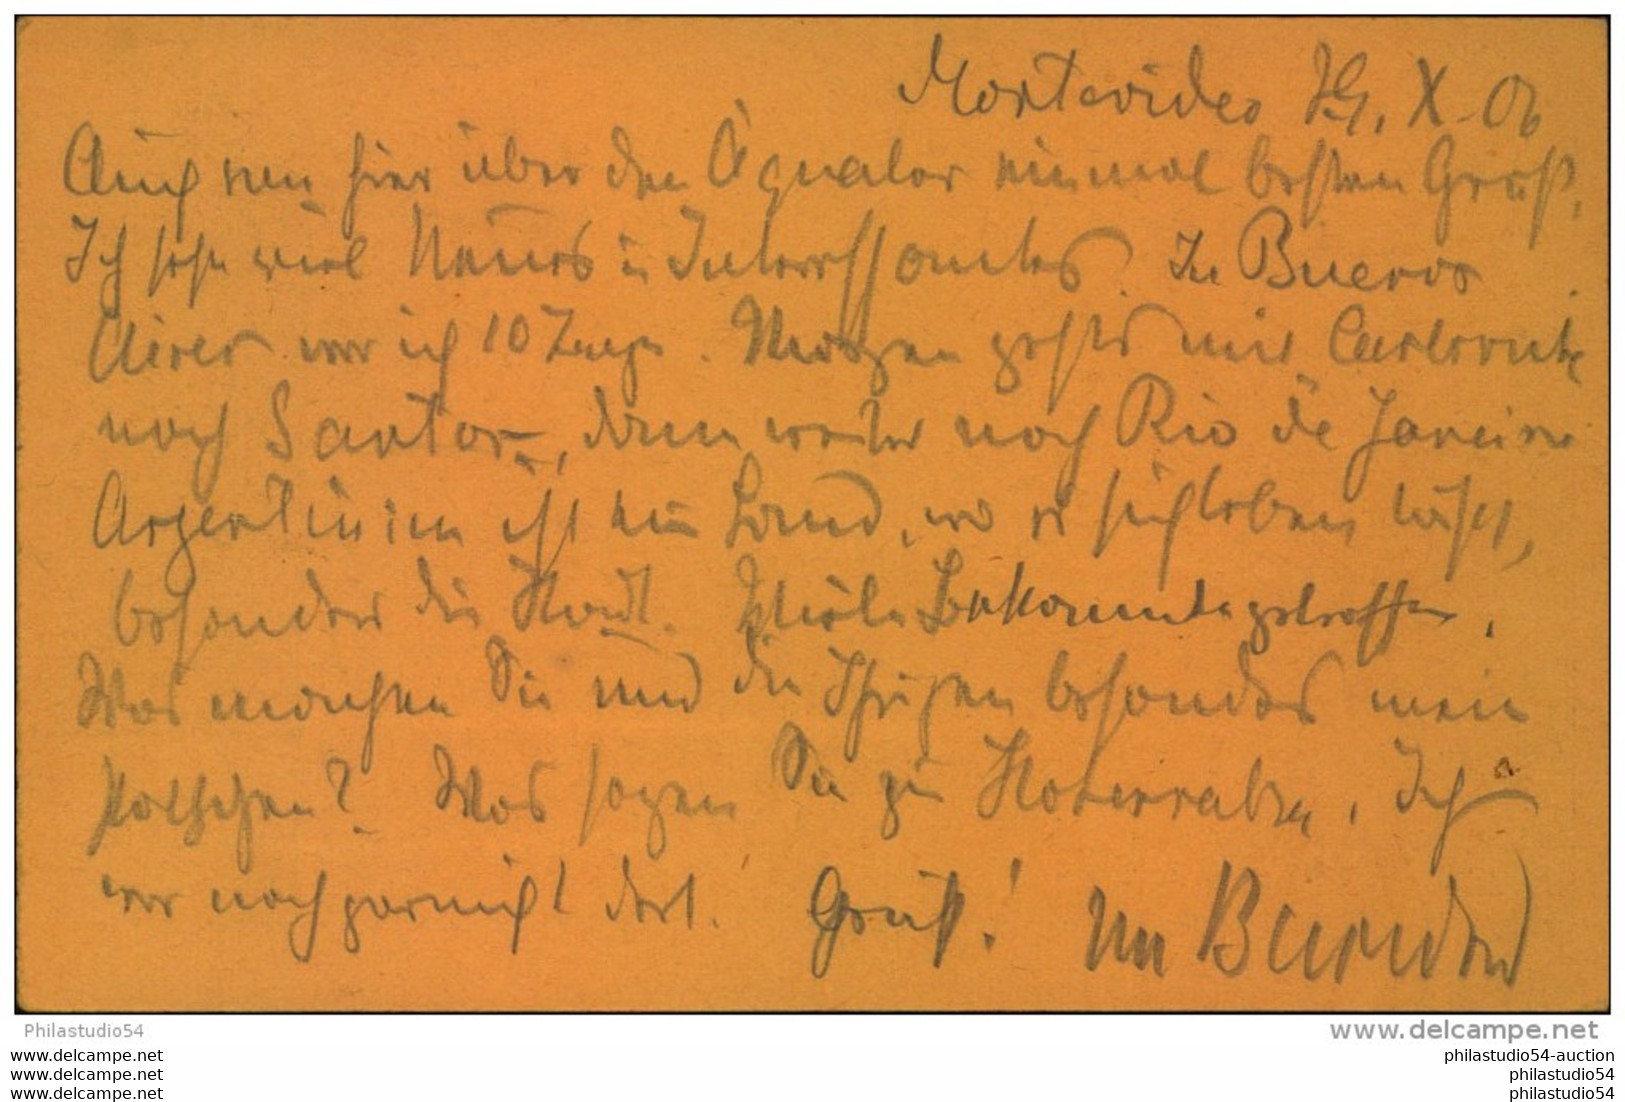 Montevideo 29. X. 06
Auch von hier über den Äquator einmal besten Gruß,
Ich sehe viel Neues u Interessantes. In Buenos
Aires war ich 10 Tage. Morgen gehts mit
nach Santos, dann weiter nach Rio de Janeiro
Argentinien ist ein Land, wo es sich leben läßt,
besonders die Stadt. Viele Bekannte getroffen.
Was machen Sie und die Ihrigen besonders mein
Patchen? Was sagen Sie zu Ich
war noch garnicht dort. Gruß! Ihr
Philastudio54
www.delcampe.net
www.delcampe.net
www.delcampe.net
www.delcampe.net
philastudio54-auction
philastudio54
philastudio54